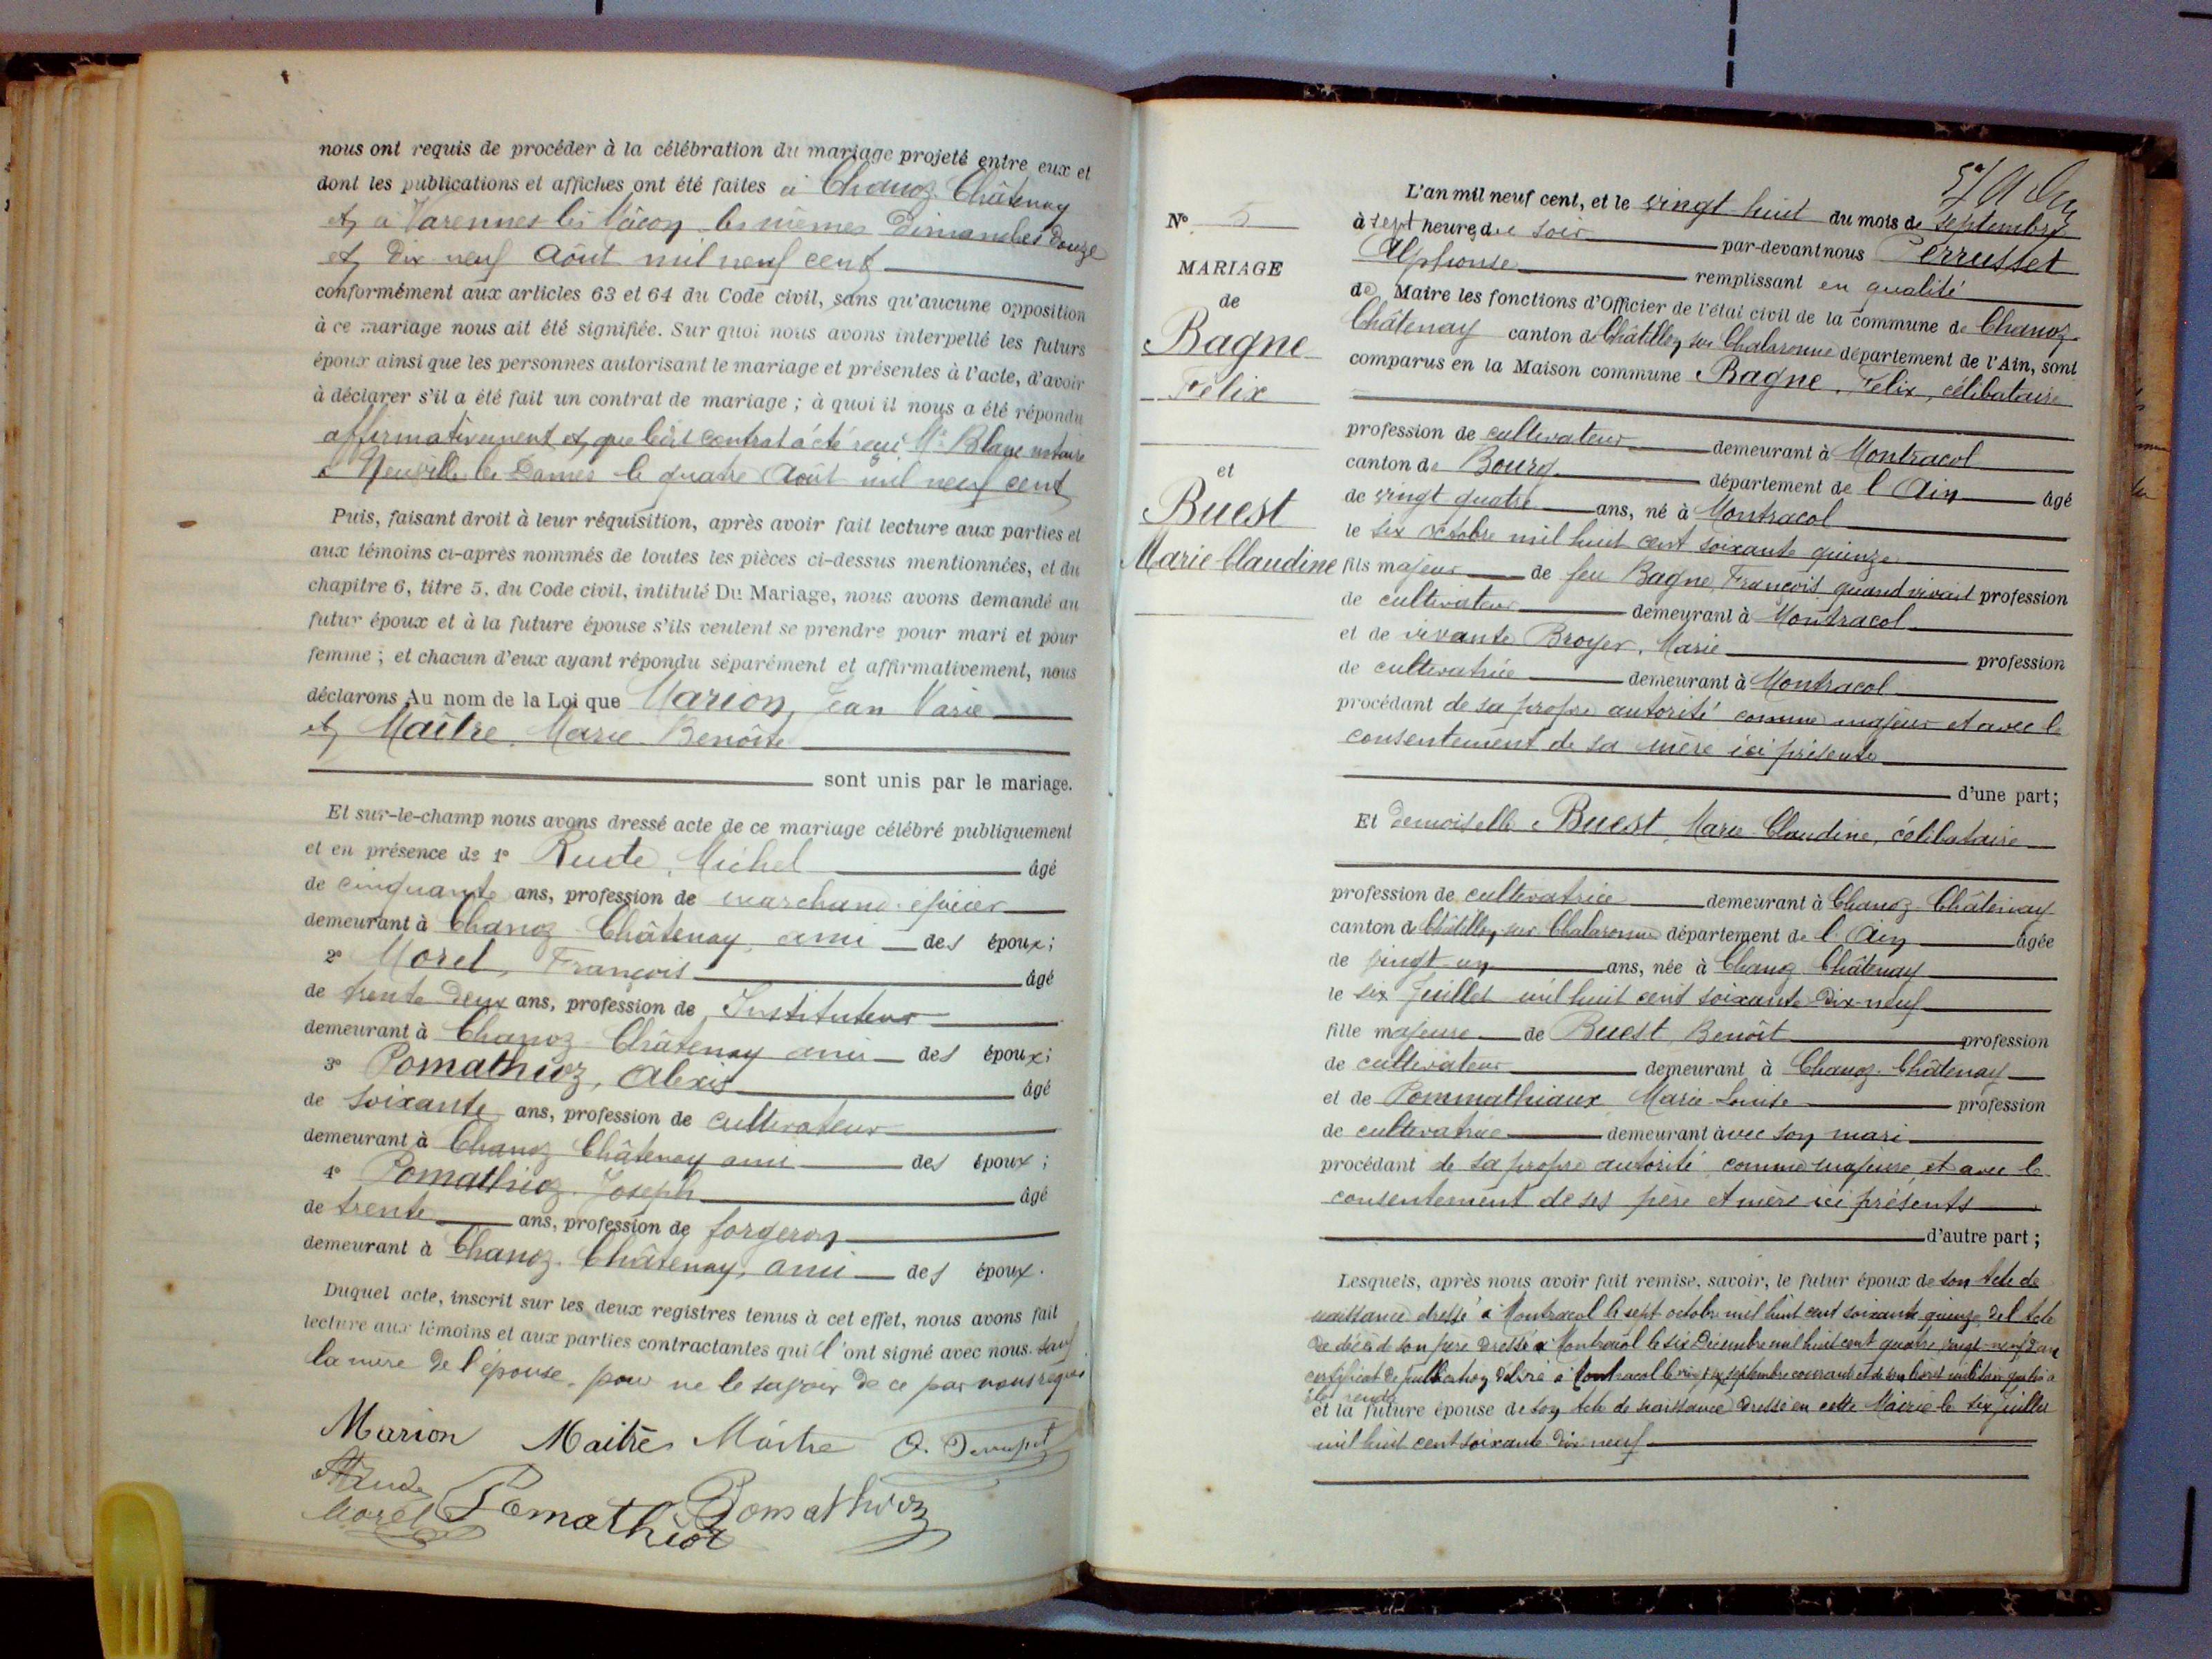 nous ont requis de procéder à la célébration du mariage projeté entre eux et
dont les publications et affiches ont été faites à Chanoz-Châtenay
et à Varennes les Mâcon les mêmes Dimanches douze
et dix neuf Août mil neuf cent
conformément aux articles 63 et 64 du Code civil, sans qu'aucune opposition
à ce mariage nous ait été signifiée. Sur quoi nous avons interpellé les futurs
époux ainsi que les personnes autorisant le mariage et présentes à l'acte, d'avoir
à déclarer s'il a été fait un contrat de mariage ; à quoi il nous a été répondu
affirmativement et que le contrat a été reçu Me Blanc notaire
à Neuville les Dames le quatre Août mil neuf cent
Puis, faisant droit à leur réquisition, après avoir fait lecture aux parties et
aux témoins ci-après nommés de toutes les pièces ci-dessus mentionnées, et du
chapitre 6, titre 5, du Code civil, intitulé Du Mariage, nous avons demandé au
futur époux et à la future épouse s'ils veulent se prendre pour mari et pour
femme ; et chacun d'eux ayant répondu séparément et affirmativement, nous
déclarons Au nom de la Loi que Marion, Jean Marie
et Maître, Marie-Benoîte
sont unis par le mariage.
Et sur-le-champ nous avons dressé acte de ce mariage célébré publiquement
et en présence de 1° Rude, Michel âgé
de cinquante ans, profession de marchand-épicier
demeurant à Chanoz-Châtenay, ami des époux ;
2° Morel, François âgé
de trente deux ans, profession de Instituteur
demeurant à Chanoz-Châtenay ami des époux ;
3° Pomathioz, Alexis âgé
de soixante ans, profession de cultivateur
demeurant à Chanoz Châtenay ami des époux ;
4° Pomathioz, Joseph âgé
de trente ans, profession de forgeron
demeurant à Chanoz-Châtenay, ami des époux.
Duquel acte, inscrit sur les deux registres tenus à cet effet, nous avons fait
lecture aux témoins et aux parties contractantes qui l'ont signé avec nous sauf
la mère de l'épouse, pour ne le savoir de ce par nous requis
Marion Maitre Maitre A. Perrusset
Rude
Morel Pomathioz Pomathioz
N° 5
MARIAGE
de
Bagne
Félix
et
Buest
Marie-Claudine
L'an mil neuf cent, et le vingt-huit du mois de Septembre
à sept heures du soir par-devant nous Perrusset
Alphonse remplissant en qualité
de Maire les fonctions d'Officier de l'état civil de la commune de Chanoz-
Châtenay canton de Châtillon sur Chalaronne département de l'Ain, sont
comparus en la Maison commune Bagne, Félix, célibataire
profession de cultivateur demeurant à Montracol
canton de Bourg département de l'Ain âgé
de vingt quatre ans, né à Montracol
le six octobre mil huit cent soixante quinze
fils majeur de feu Bagne, François, quand vivait profession
de cultivateur demeurant à Montracol
et de vivante Broyer, Marie profession
de cultivatrice demeurant à Montracol
procédant de sa propre autorité comme majeur et avec le
consentement de sa mère ici présente
d'une part ;
Et demoiselle Buest, Marie Claudine, célibataire
profession de cultivatrice demeurant à Chanoz-Châtenay
canton de Châtillon sur Chalaronne département de l'Ain âgée
de vingt-un ans, née à Chanoz Châtenay
le six Juillet mil huit cent soixante-dix-neuf
fille majeure de Buest, Benoît profession
de cultivateur demeurant à Chanoz-Châtenay
et de Pommathiaux Marie-Louise profession
de cultivatrice demeurant avec son mari
procédant de sa propre autorité comme majeure, et avec le
consentement de ses père et mère ici présents
d'autre part ;
Lesquels, après nous avoir fait remise, savoir, le futur époux de son acte de
naissance dressé à Montracol le sept octobre mil huit cent soixante quinze de l'acte
de décès de son père dressé à Montracol le six Décembre mil huit cent quatre vingt-neuf d'un
certificat de publication délivré à Montracol le septembre courant et de son livret militaire qu'on a
rendu
et la future épouse de son acte de naissance dressé en cette Mairie le six juillet
mil huit cent soixante dix-neuf